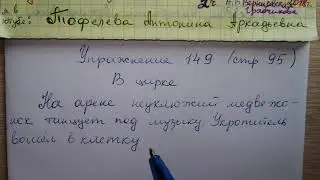 Тюфелева Антонина Аркадьевна
Упражнение 149 (стр. 95)
В цирке
На арене неуклюжий медвежо-
нок танцует под музыку. Укротитель
вошел в клетку